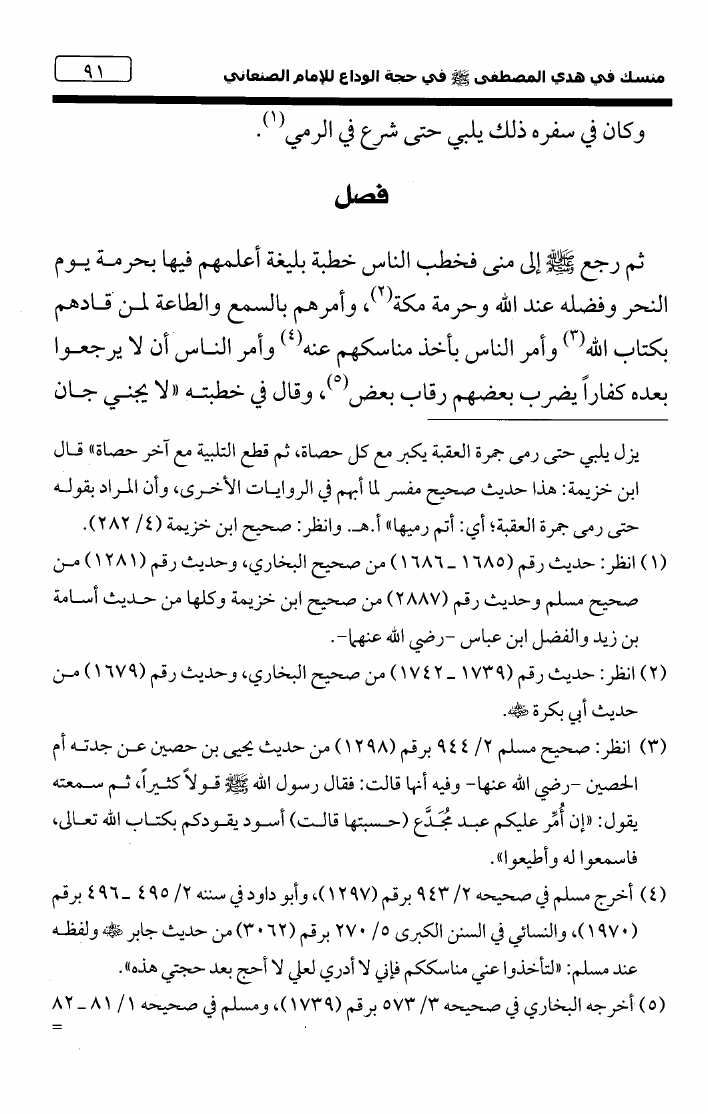 منسك في هدي المصطفى ﷺ في حجة الوداع للإمام الصنعاني ٩١
وكان في سفره ذلك يلبي حتى شرع في الرمي(١).
فصل
ثم رجع ﷺ إلى منى فخطب الناس خطبة بليغة أعلمهم فيها بحرمة يوم
النحر وفضله عند الله وحرمة مكة(٢)، وأمرهم بالسمع والطاعة لمن قادهم
بكتاب الله(٣) وأمر الناس بأخذ مناسكهم عنه(٤) وأمر الناس أن لا يرجعوا
بعده كفاراً يضرب بعضهم رقاب بعض(٥)، وقال في خطبته «لا يجني جان
يزل يلبي حتى رمى جمرة العقبة يكبر مع كل حصاة، ثم قطع التلبية مع آخر حصاة» قال
ابن خزيمة: هذا حديث صحيح مفسر لما أبهم في الروايات الأخرى، وأن المراد بقوله
حتى رمى جمرة العقبة؛ أي: أتم رميها» أ.هـ. وانظر: صحيح ابن خزيمة (٤/ ٢٨٢).
(١) انظر: حديث رقم (١٦٨٥ ـ ١٦٨٦) من صحيح البخاري، وحديث رقم (١٢٨١) من
صحيح مسلم وحديث رقم (٢٨٨٧) من صحيح ابن خزيمة وكلها من حديث أسامة
بن زيد والفضل ابن عباس -رضي الله عنهما-.
(٢) انظر: حديث رقم (١٧٣٩ ـ ١٧٤٢) من صحيح البخاري، وحديث رقم (١٦٧٩) من
حديث أبي بكرة ﷺ.
(٣) انظر: صحيح مسلم ٢/ ٩٤٤ برقم (١٢٩٨) من حديث يحيى بن حصين عن جدته أم
الحصين -رضي الله عنها- وفيه أنها قالت: فقال رسول الله ﷺ قولاً كثيراً، ثم سمعته
يقول: «إن أُمِّر عليكم عبد مُجَدَّع (حسبتها قالت) أسود يقودكم بكتاب الله تعالى،
فاسمعوا له وأطيعوا».
(٤) أخرج مسلم في صحيحه ٢/ ٩٤٣ برقم (١٢٩٧)، وأبو داود في سننه ٢/ ٤٩٥ ـ ٤٩٦ برقم
(١٩٧٠)، والنسائي في السنن الكبرى ٥/ ٢٧٠ برقم (٣٠٦٢) من حديث جابر ﷺ ولفظه
عند مسلم: «لتأخذوا عني مناسككم فإني لا أدري لعلي لا أحج بعد حجتي هذه».
(٥) أخرجه البخاري في صحيحه ٣/ ٥٧٣ برقم (١٧٣٩)، ومسلم في صحيحه ١/ ٨١ ـ ٨٢
=